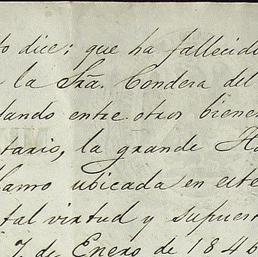 to dice; que ha fallecido
la Sra. Condesa del
dando entre otros bienes
tario, la grande Ha
llamo ubicada en este
tal virtud y supuest
7 de Enero de 1846